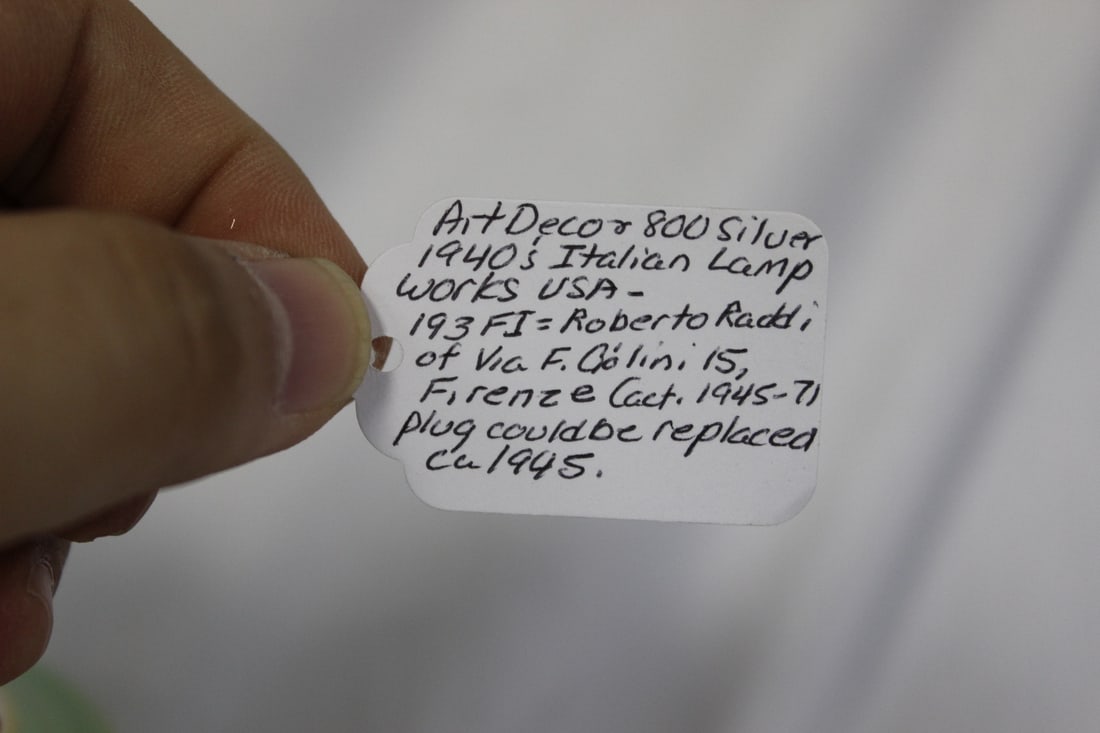 Art Decor 800 Silver
1940's Italian Lamp
works USA -
193 FI = Roberto Raddi
of Via F. Gólini 15,
Firenze (act. 1945-71
plug could be replaced
ca 1945.